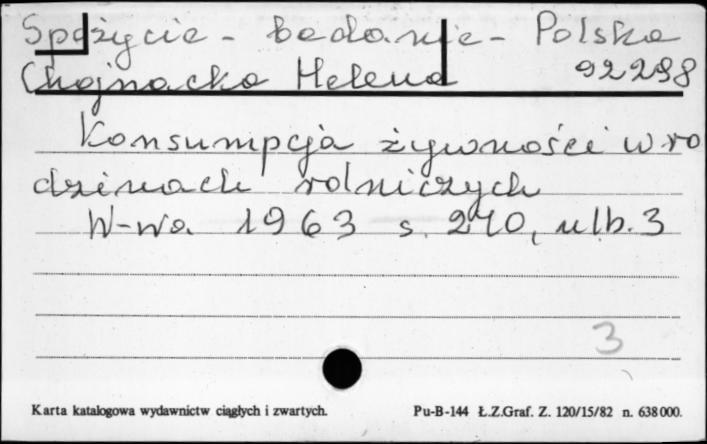 Spożycie - badanie - Polska
Chojnacka Helena 92298
Konsumpcja żywności w ro
dzinach rolniczych
W-wa 1963 s. 240, nlb. 3
3
Karta katalogowa wydawnictw ciągłych i zwartych. Pu-B-144 Ł.Z.Graf. Z. 120/15/82 n. 638000.